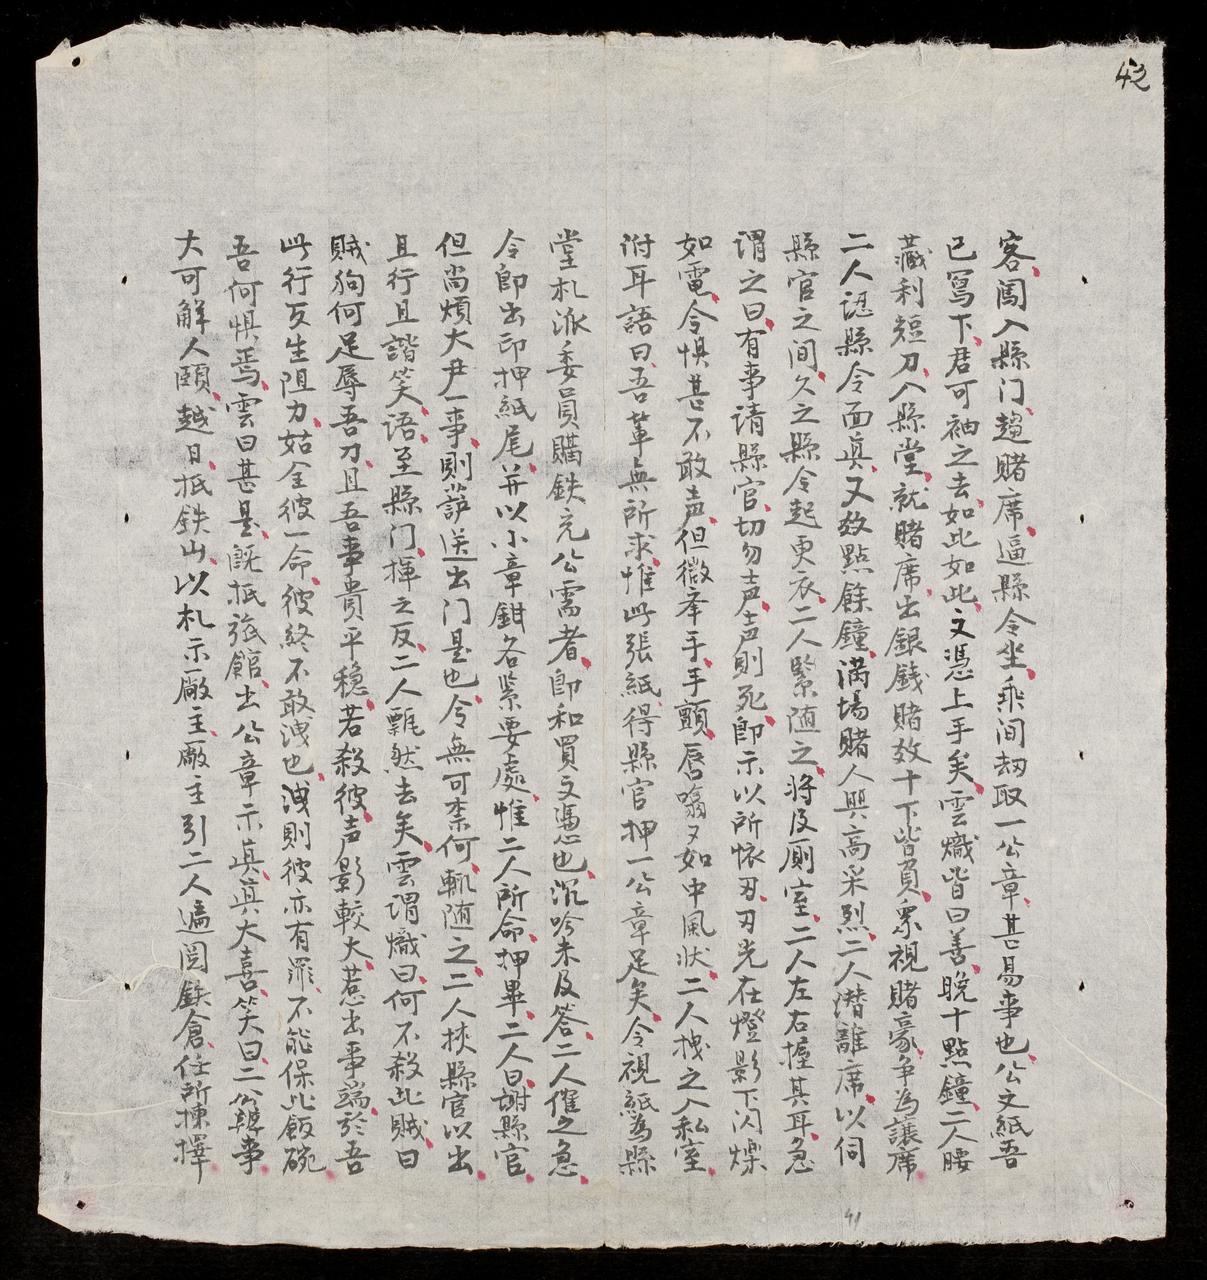 42
客闖入縣门趨賭席逼縣令坐乘间刼取一公章甚易事也公文紙吾
已寫下君可袖之去如此如此文憑上手矣雲熾皆曰善晚十點鐘二人腰
藏利短刀入縣堂就賭席出銀錢賭效十下皆負眾視賭豪争為讓席
二人認縣令面真又效點餘鐘满場賭人興高采烈二人潛離席以伺
縣官之间久之縣令起更衣二人緊随之將及厠室二人左右握其耳急
谓之曰有事请縣官切勿声声則死卽示以所懷刃刃光在燈影下闪爍
如電令惧甚不敢声但微牽手手顫唇噏夕如中風状二人拽之入私室
附耳語曰吾輩無所求惟此張紙得縣官押一公章足矣令視紙為縣
堂札派委員購鉄充公需者卽和買文憑也沉吟未及答二人催之急
令卽出印押紙尾并以小章鉗各紧要處惟二人所命押畢二人曰謝縣官
但尚煩大尹一事則護送出门是也令無可柰何輒随之二人挾縣官以出
且行且諧笑语至縣门揮之反二人飄然去矣雲谓熾曰何不殺此賊曰
賊狗何足辱吾刀且吾事貴平穏若殺彼声影較大惹出事端於吾
此行反生阻力姑全彼一命彼终不敢洩也洩則彼亦有罪不能保此飯碗
吾何惧焉雲曰甚是旣抵張館出公章示真真大喜笑曰二公韓事
大可解人頤越日抵鉄山以札示廠主廠主引二人遍閲鉄倉任所揀擇
41